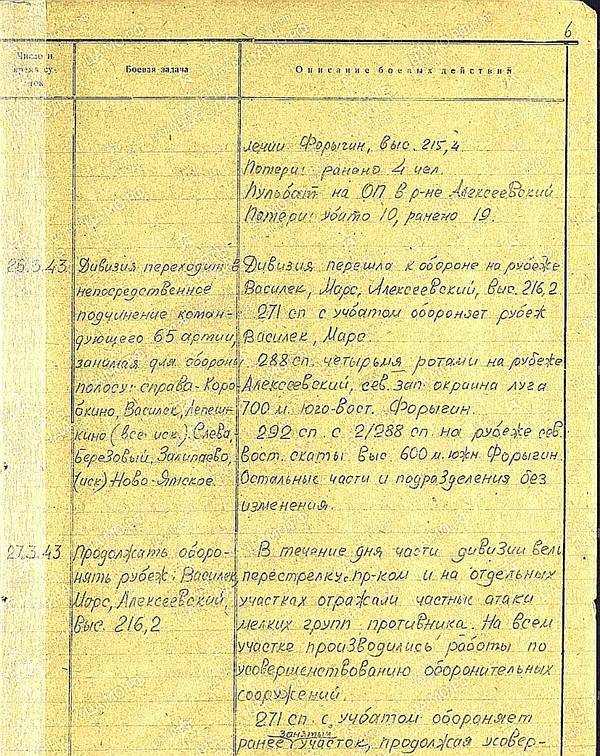 6
Число и
время су-
ток
Боевая задача
Описание боевых действий
лении Форыгин, выс. 215,4
Потери: ранено 4 чел.
Пульбат на ОП в р-не Алексеевский
Потери: убито 10, ранено 19.
26.3.43
Дивизия переходит в
непосредственное
подчинение коман-
дующего 65 артии,
занимая для обороны
полосу: справа- Коро-
бкино, Василек, Лепеш-
кино (все иск.). Слева,
Березовый, Залипаево,
(иск) Ново-Ямское.
Дивизия перешла к обороне на рубеже
Василек, Марс, Алексеевский, выс. 216,2.
271 сп с учбатом обороняет рубеж
Василек, Марс.
288 сп. четырьмя ротами на рубеже
Алексеевский, сев. зап. окраина луга
700 м. юго-вост. Форыгин.
292 сп. с 2/288 сп. на рубеже сев.
вост. скаты выс. 600 м. южн. Форыгин.
Остальные части и подразделения без
изменения.
27.3.43
Продолжать оборо-
нять рубеж: Василек,
Марс, Алексеевский,
выс. 216,2
В течение дня части дивизии вели
перестрелку с пр-ком и на отдельных
участках отражали частные атаки
мелких групп противника. На всем
участке производились работы по
усовершенствованию оборонительных
сооружений.
271 сп с учбатом обороняет
занятый
ранее участок, продолжая усовер-